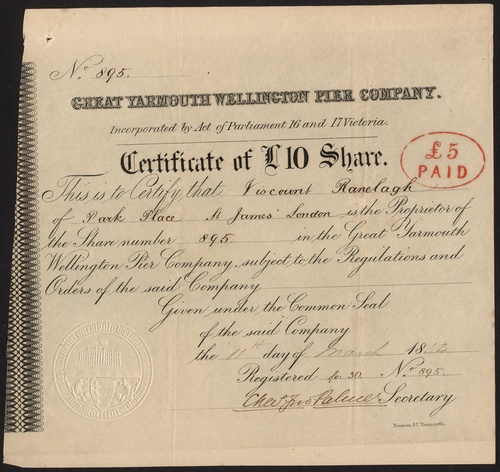 No. 895.
GREAT YARMOUTH WELLINGTON PIER COMPANY.
Incorporated by Act of Parliament 16 and 17 Victoria.
Certificate of £10 Share.
£5
PAID
This is to Certify, that Viscount Ranelagh
of Park Place St James' London is the Proprietor of
the Share number 895. in the Great Yarmouth
Wellington Pier Company, subject to the Regulations and
Orders of the said Company
Given under the Common Seal
of the said Company
the 11th day of March 18
Registered fo. 30. No. 895
Secretary
Yarmouth.